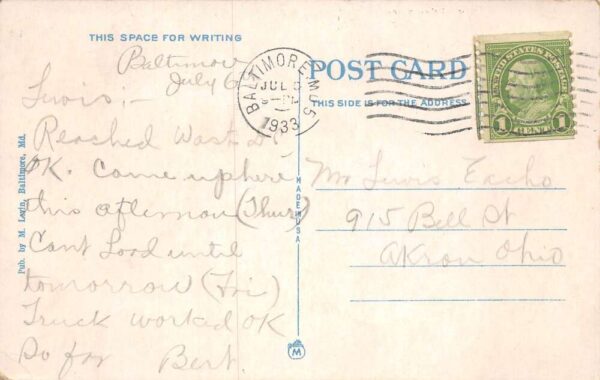 THIS SPACE FOR WRITING
Baltimore
July 6
Lewis:-
Reached Wash D C
OK. Came up here
this afternoon (Thur)
Cant Load until
tomorrow (Fri)
Truck worked OK
So far Bert.
Pub. by M. Levin, Baltimore, Md.
MADE IN USA
M
BALTIMORE, MD. 5
JUL
1933
POST CARD
THIS SIDE IS FOR THE ADDRESS
UNITED STATES POSTAGE
1 CENT 1
Mr Lewis
915 Bell St
Akron Ohio